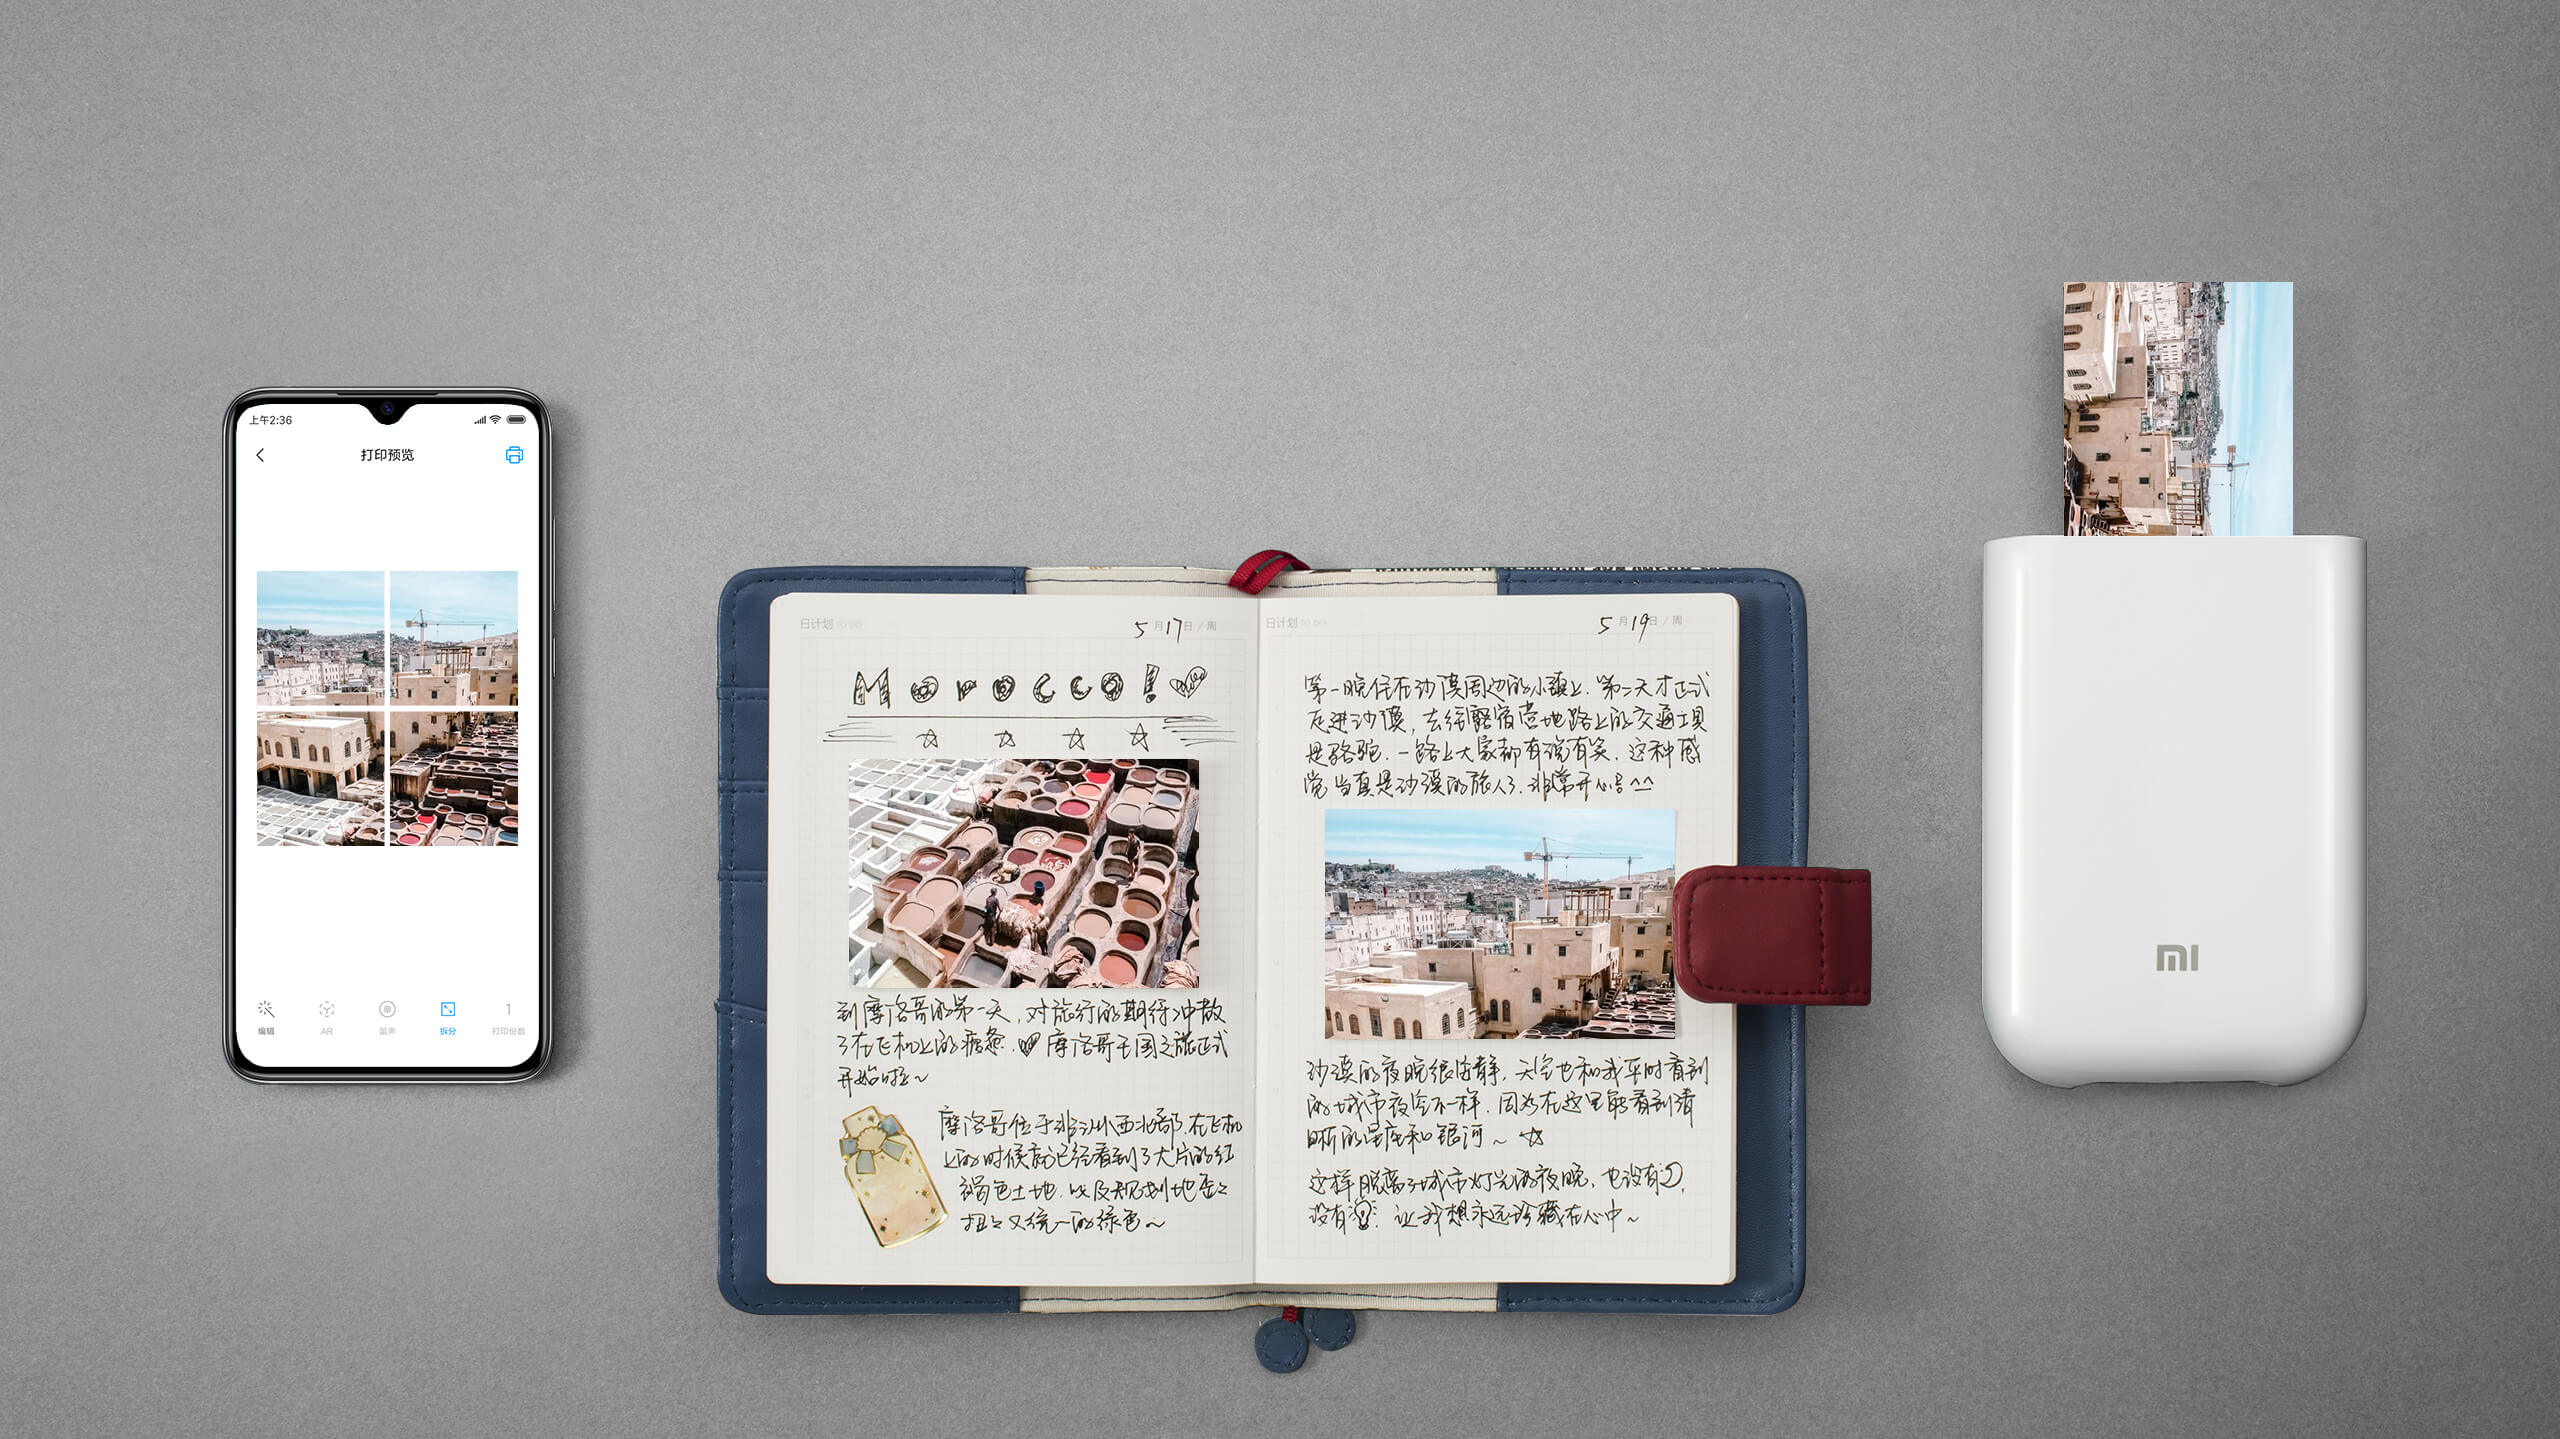 上午2:36
打印预览
编辑
AR
留声
拆分
1
打印份数
日计划 TO DO
5月17日/周
Morocco!
到摩洛哥的第一天,对旅行的期待冲散
了在飞机上的疲惫.摩洛哥王国之旅正式
开始啦~
摩洛哥位于非洲西北部.在飞机
上的时候就已经看到了大片的红
褐色土地.以及规划地歪歪
扭扭又统一的绿色~
日计划 TO DO
5月19日/周
第一晚住在沙漠周边的小镇上.第二天才正式
走进沙漠,去往露宿营地路上的交通工具
是骆驼.一路上大家都有说有笑.这种感
觉当真是沙漠的旅人了.非常开心^^
沙漠的夜晚很安静,天空也和我平时看到
的城市夜空不一样.因为在这里能看到清
晰的星座和银河~
这样脱离了城市灯光的夜晚,也没有
没有 让我想永远珍藏在心中~
MI